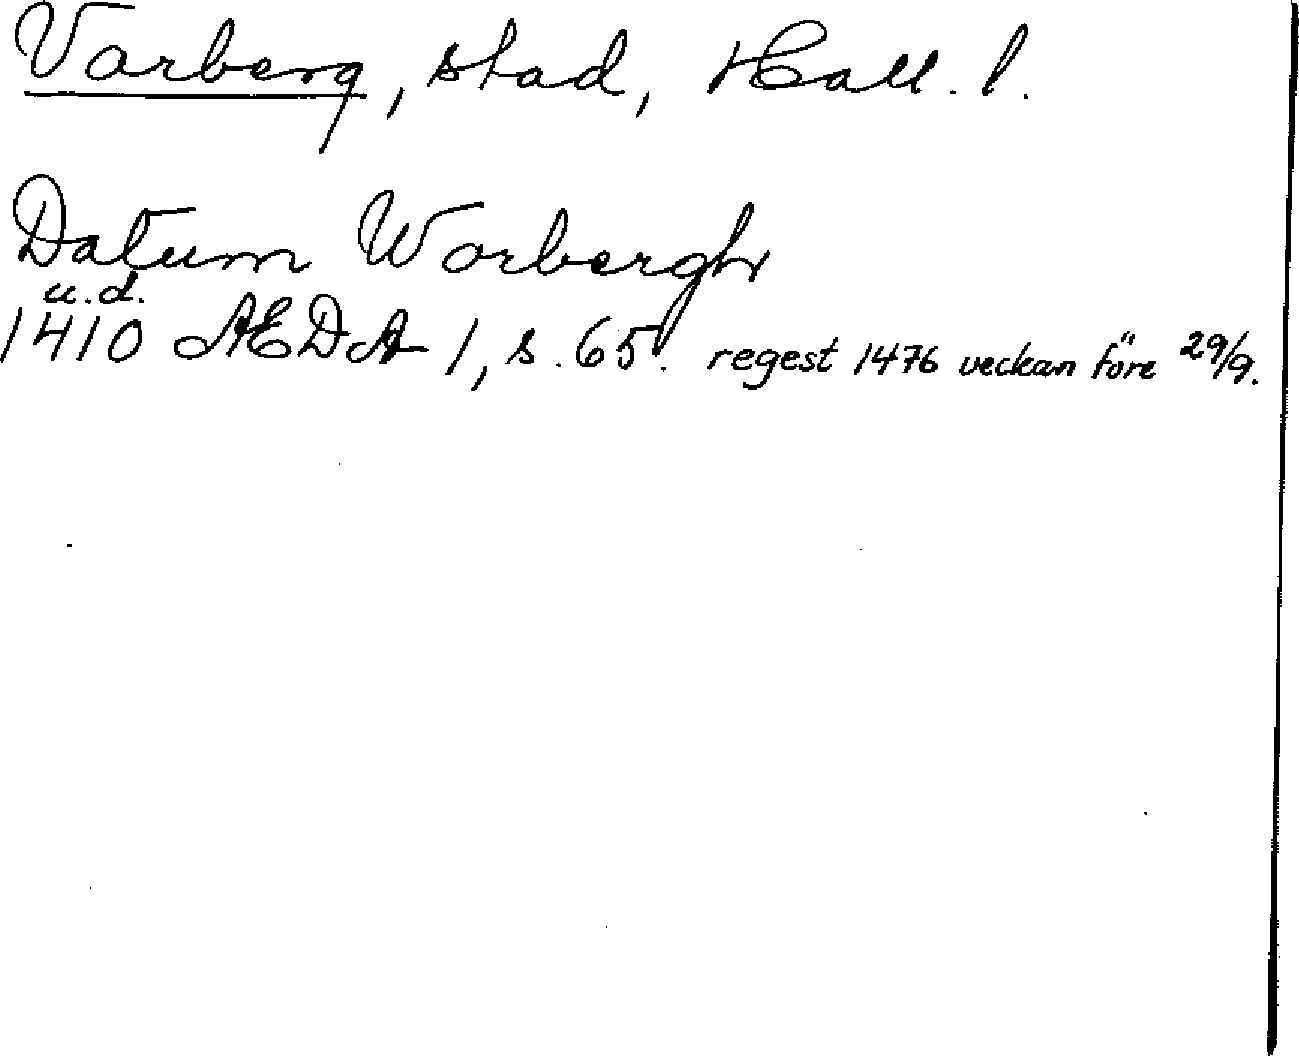 Varberg, stad, Hall. l.
Datum Warbergh
u.d.
1410 ÆDA 1, s. 65. regest 1476 veckan före 29/9.